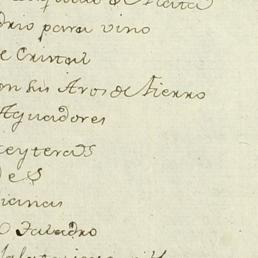 de Plata
drio para vino
e Cristal
on sus Aros de fierro
Aguadores
eyteras
de S
ianas
o Taladro